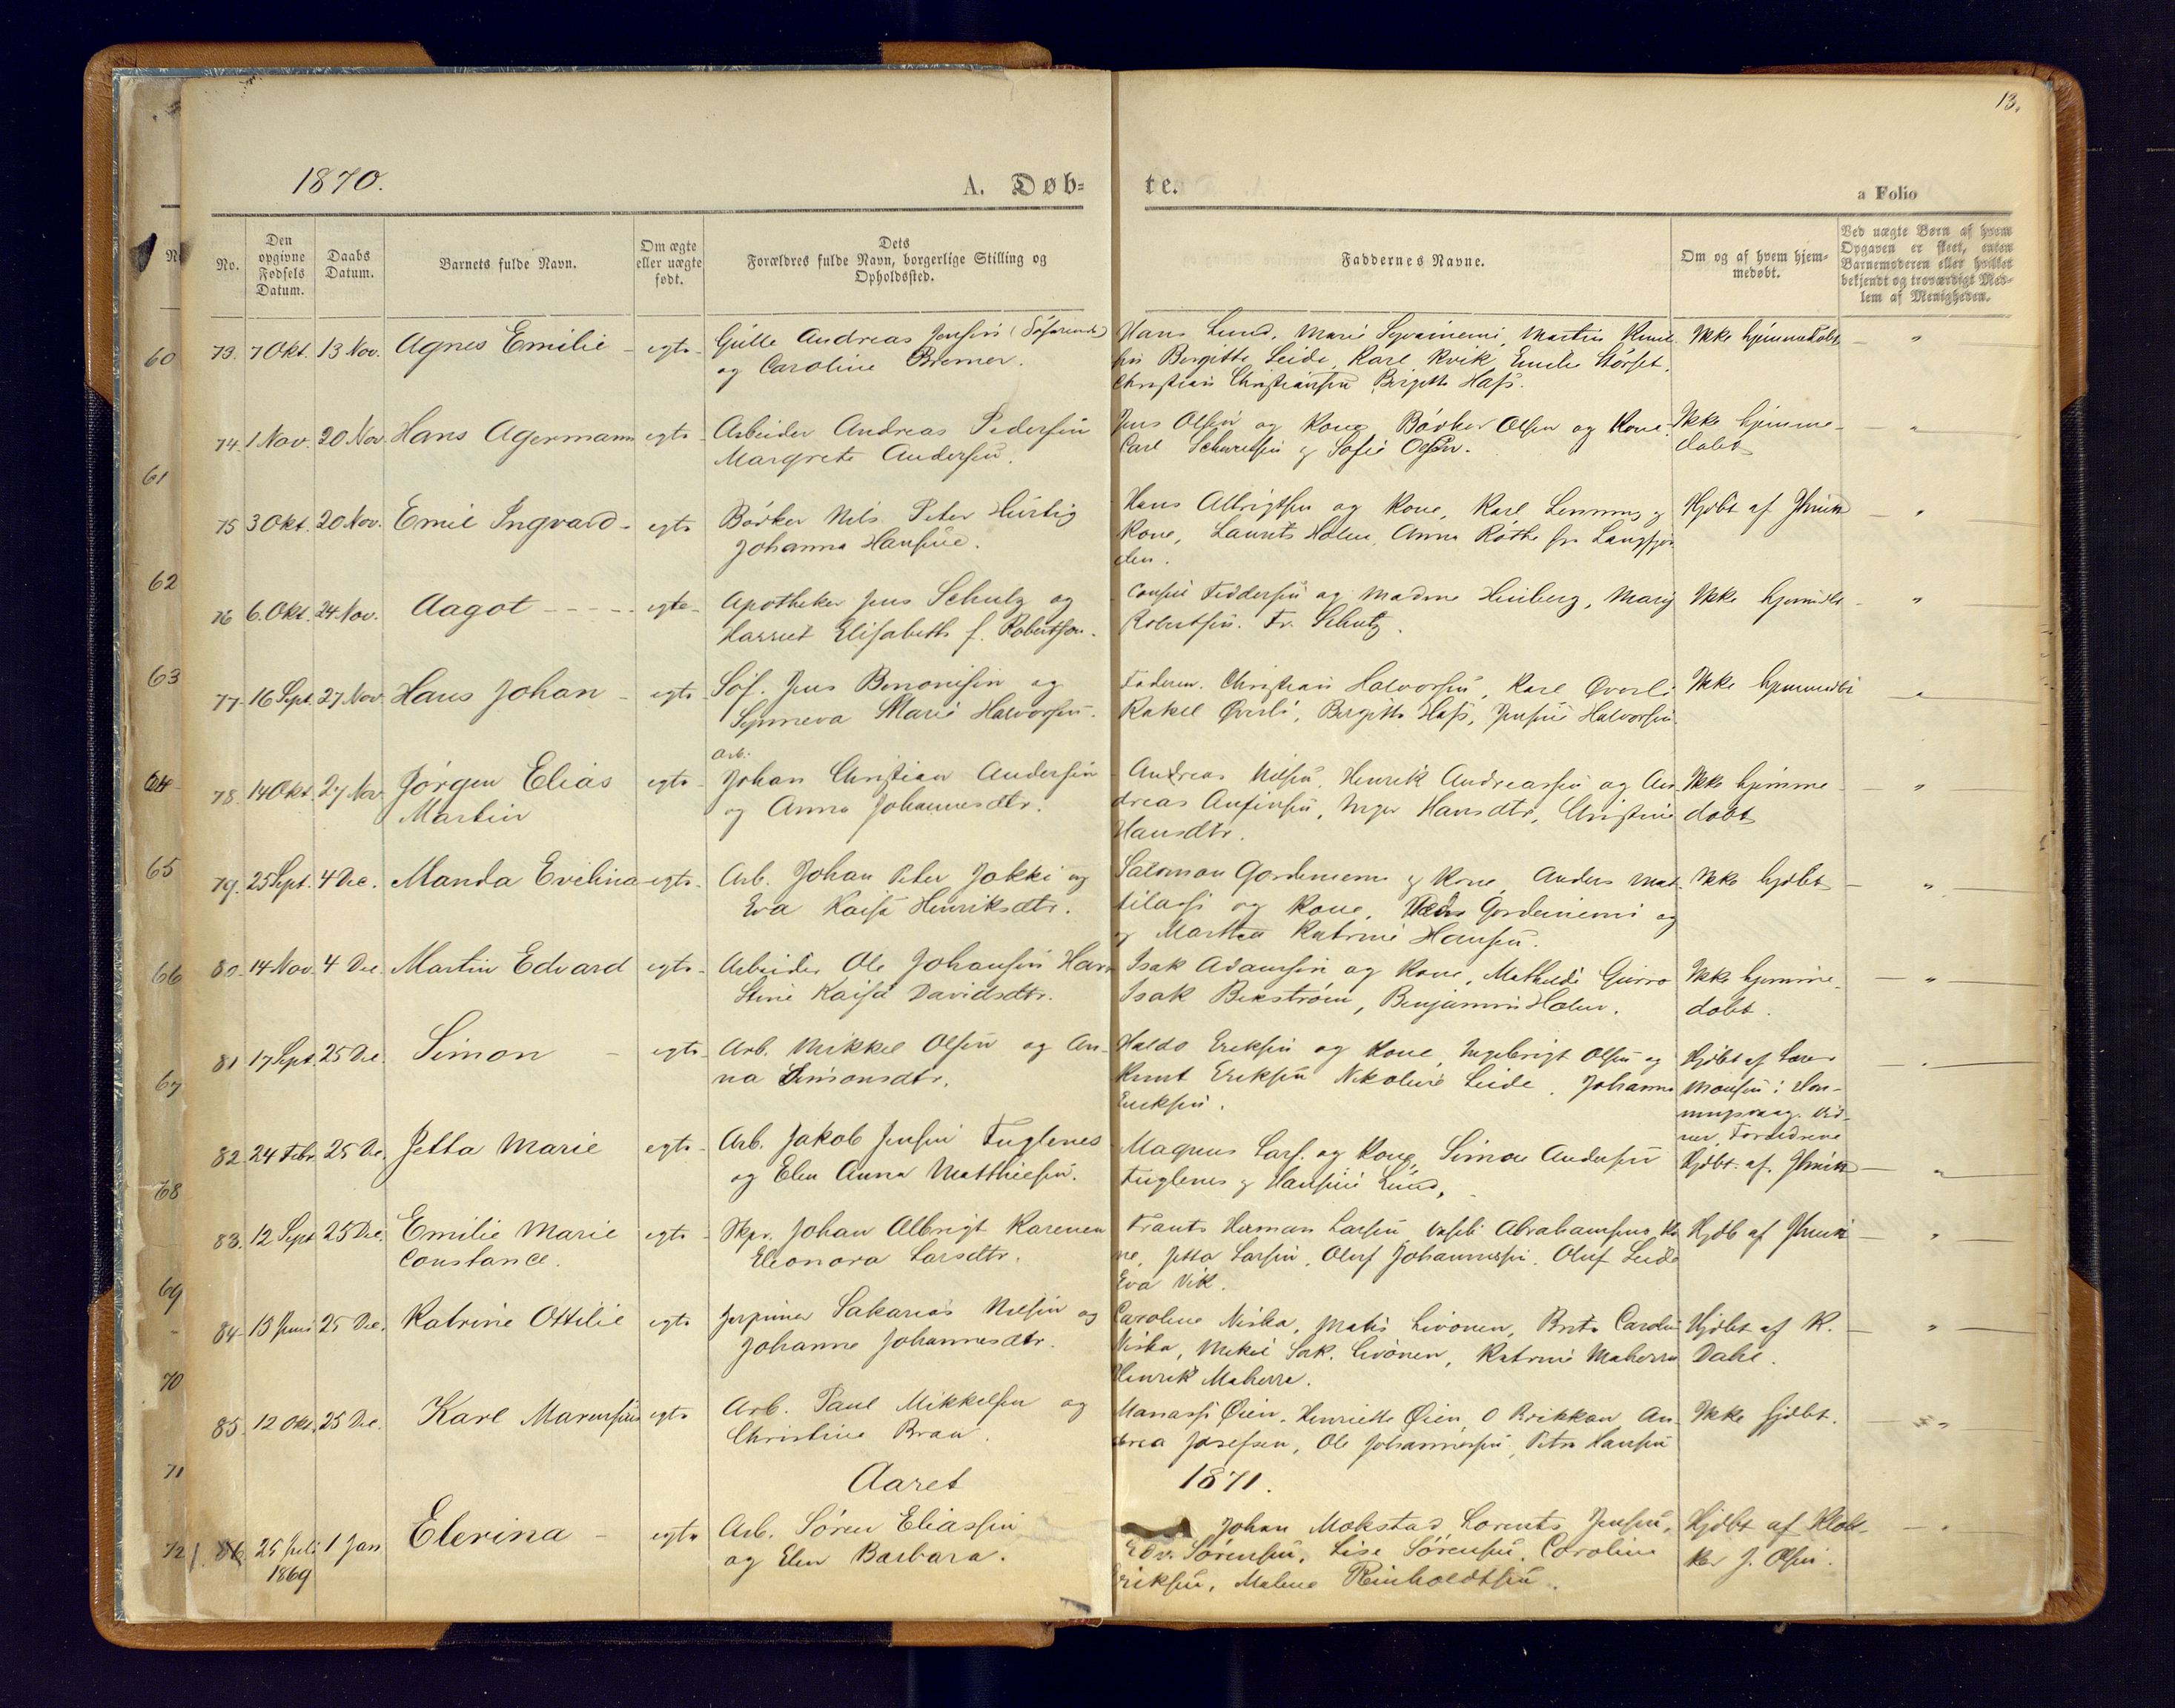 13.
1870.
A. Døb-
te.
a Folio
No.
Den opgivne Fødsels Datum.
Daabs Datum.
Barnets fulde Navn.
Om ægte eller uægte født.
Dets Forældres fulde Navn, borgerlige Stilling og Opholdssted.
Faddernes Navne.
Om og af hvem hjemmedøbt.
Ved uægte Børn af hvem Opgaven er skeet, enten Barnemoderen eller hvilket bekjendt og troværdigt Medlem af Menigheden.
60
61
62
63
64
65
66
67
68
69
70
71
72
73. 7 Okt. 13 Nov. Agnes Emilie - egte - Gulle Andreas Jensen (Søfarende)
og Caroline Bremer.
Hans Lund, Marie
Birgitte Leide, Karl Kvik, Emilie Störset,
Christian Christiansen Birgitte Hass.
Ikke hjemmedöbt
74. 1 Nov. 20 Nov. Hans Agermann egte - Arbeider Andreas Pedersen
Margrete Andersen.
Jens Olsen og Kone, Bödker Olsen og Kone.
Carl og Sofie Olsen.
Ikke hjemme-
döbt
75 3 Okt. 20 Nov. Emil Ingvard - egte Bödker Nils Peter Hurtig
Johanna Hansine.
Hans Albrigtsen og Kone, Karl Lemming og
Kone, Laurits Holm, Anna Röthe fra Langfjor
den.
Hjdöbt af
76 6. Okt. 24 Nov. Aagot - - - - - egte - Apotheker Jens Schulz og
Harriet Elisabeth f. Robertson.
Consul Feddersen og Madme Heiberg, Mary
Robertsen. Fr. Schulz.
Ikke hjemmdbt
77- 16 Sept. 27 Nov. Hans Johan - egte Söf. Jens Benonisen og
Synneva Marie Halvorsen.
Faderen. Christian Halvorsen, Karl Överli
Rakel Överli, Birgitte Hass, Jensine Halvorsen.
Ikke hjemmedbt
78. 14 Okt. 27 Nov. Jörgen Elias egte - Arb. Johan Christian Andersen
Martin
og Anna Johannesdtr.
Andreas Nilsen, Henrik Andreassen og An
dreas Anfinsen, Inger Hansdtr, Christine
Hansdtr.
Ikke hjemme
döbt
79. 25 Sept. 4 Dec. Manda Evelina - egte - Arb. Johan Peter Jakki og
Eva Kaisa Henriksdtr.
Salomon og Kone, Anders Mat-
tilassi og Kone,
og Martha Katrine Hansen.
Ikke hjdöbt
80. 14 Nov. 4 Dec. Martin Edvard egte - Arbeider Ole Johansen
Stine Kaisa Davidsdtr.
Isak Adamsen og Kone, Mathilde
Isak Bekström, Benjamin Holm.
Ikke hjemme-
döbt.
81 17 Sept. 25 Dec. Simon - egte - Arb. Mikkel Olsen og An-
na Simonsdtr.
Haldo Eriksen og Kone, Ingebrigt Olsen og
Knut Eriksen Nikoline Leide, Johanna
Eriksen.
Hjdöbt af Lærer
Monsen i Hon-
ningsvaag. Vid-
ner, Forældrene
82. 24 Febr 25 De. Jetta Marie egte - Arb. Jakob Jensen Fuglenes
og Elen Anna Matthiesen.
Magnus Lars. og Kone, Simon Andersen
Fuglenes og Hansine Lund.
Hjdbt. af
83. 12 Sept 25 Dec. Emilie Marie egte - Skpr. Johan Albrigt Karenen
Constance.
Eleonora Larsdtr.
Frants Herman Larsen, Abrahamsens Ko
ne, Jetta Larsen, Oluf Johannessen, Oluf Leide
Eva Vik.
Hjdb af
84- 13 Juni 25 Dec. Katrine Ottilie egte Sakarias Nilsen og
Johanne Johannesdtr.
Caroline Niska, Matis Livonen, Brita Carolin
Niska, Mikel Sak. Livönen, Katrine Maherra
Henrik Maherra.
Hjdöbt af K.
Dahl.
85. 12 Okt. 25 Dec. Karl egte Arb. Paul Mikkelsen og
Christine Bran.
Manassi Öien, Henriette Öien, O Brikkan An-
drea Josefsen, Ole Johannessen, Petra Hansen
Ikke hjdbt.
Aaret
1871.
1. 86. 25 Juli 1869 1 Jan Elerina - egte Arb. Sören Eliassen
og Elen Barbara.
Johan Mokstad, Lorents Jensen,
Edv. Sörensen, Lise Sörensen, Caroline
Eriksen, Malene Reinholdtsen.
Hjdöbt af Klok-
ker J. Olsen.